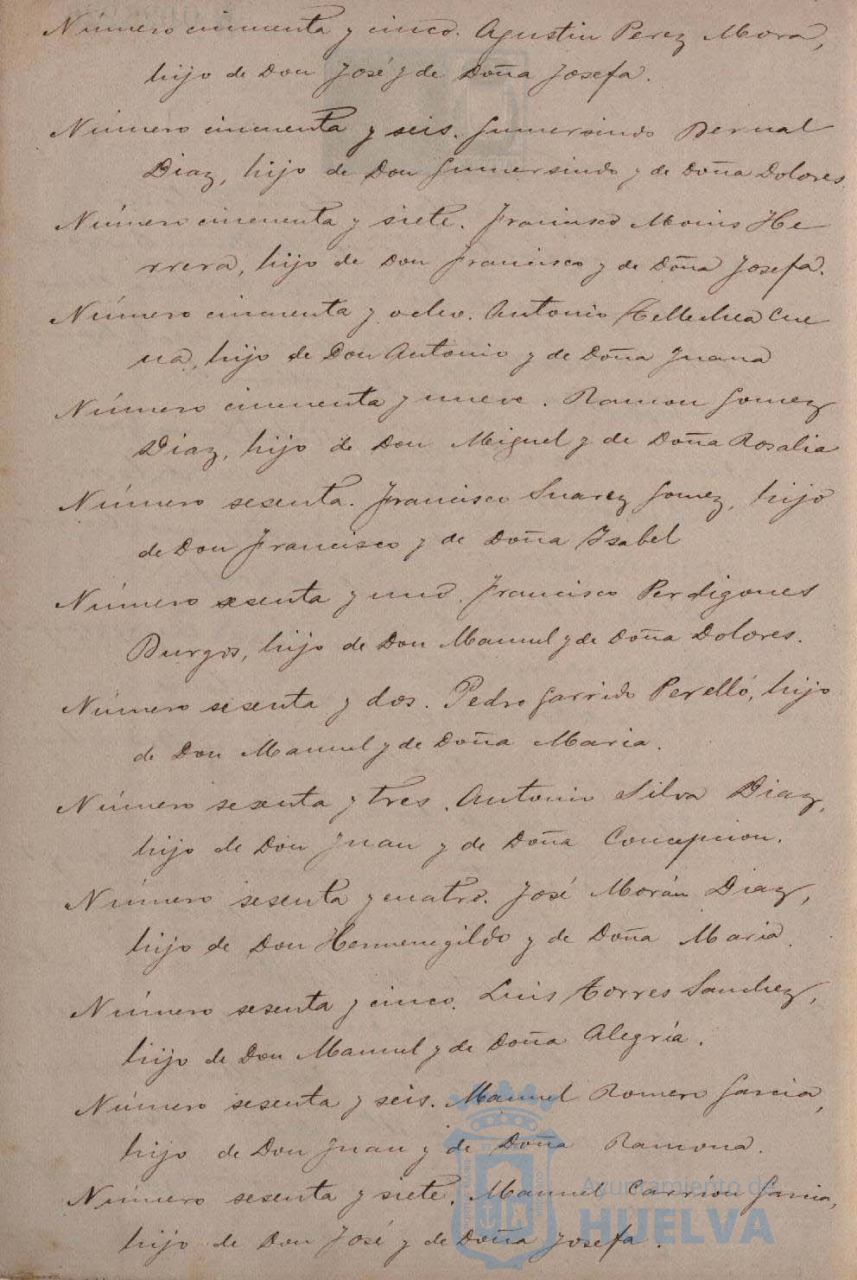 Número cincuenta y cinco. Agustin Perez Mora,
hijo de Don José y de Doña Josefa.
Número cincuenta y seis. Gumersindo Bernal
Diaz, hijo de Don Gumersindo y de Doña Dolores
Número cincuenta y siete. Francisco He-
rrera, hijo de Don Francisco y de Doña Josefa.
Número cincuenta y ocho. Antonio Tellechea Cue
va, hijo de Don Antonio y de Doña Juana
Número cincuenta y nueve. Ramon Gomez
Diaz, hijo de Don Miguel y de Doña Rosalia
Número sesenta. Francisco Suarez Gomez, hijo
de Don Francisco y de Doña Isabel
Número sesenta y uno. Francisco Perdigones
Burgos, hijo de Don Manuel y de Doña Dolores.
Número sesenta y dos. Pedro Garrido Perelló, hijo
de Don Manuel y de Doña Maria.
Número sesenta y tres. Antonio Silva Diaz,
hijo de Don Juan y de Doña Concepcion.
Número sesenta y cuatro. José Morán Diaz,
hijo de Don Hermenegildo y de Doña Maria.
Número sesenta y cinco. Luis Torres Sanchez,
hijo de Don Manuel y de Doña Alegría.
Número sesenta y seis. Manuel Romero Garcia,
hijo de Don Juan y de Doña Ramona.
Número sesenta y siete. Manuel Carrion Garcia,
hijo de Don José y de Doña Josefa.
Ayuntamiento de
HUELVA